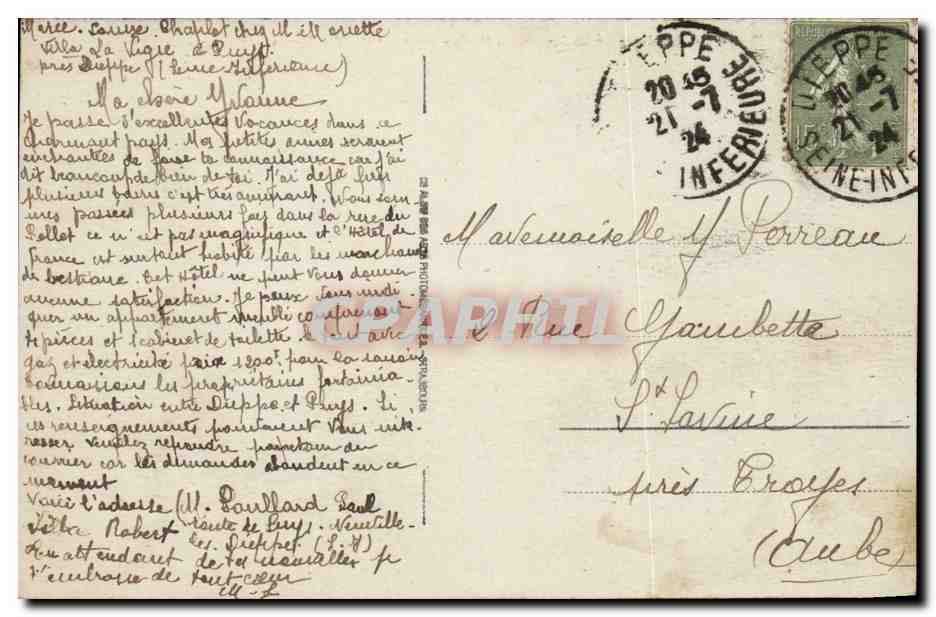 Marie-Louise Chaplot chez M. Mariette
Villa La Vigie à Puys
près Dieppe (Seine Inférieure)
Ma chère Yvonne
Je passe d'excellentes vacances dans ce
charmant pays. Mes petites amies seraient
enchantées de faire ta connaissance car j'ai
dit beaucoup de bien de toi. J'ai déjà pris
plusieurs bains c'est très amusant. Nous som-
mes passées plusieurs fois dans la rue du
Pollet ce n'est pas magnifique et l'Hôtel de
France est surtout habité par les marchands
de bestiaux. Cet Hôtel ne peut vous donner
aucune satisfaction. Je peux vous indi-
quer un appartement meublé comprenant
4 pièces et 1 cabinet de toilette avec
gaz et électricité prix 1200f. pour la saison
connaissons les propriétaires fort aima-
bles. Situation entre Dieppe et Puys. Si
ces renseignements pouvaient vous inté-
resser veuillez répondre par retour du
courrier car les demandes abondent en ce
moment
Voici l'adresse (M. Poullard Paul
Villa Robert route de Puys. Neuville-
les-Dieppe (S. I)
En attendant de tes nouvelles je
t'embrasse de tout cœur
M-L
STRASBOURG
DIEPPE
20 45
21 -7
24
SEINE INFERIEURE
DIEPPE
20 45
21 -7
24
SEINE-INF
15
CPAPHIL
Mademoiselle Y Perreau
2 Rue Gambetta
St Savine
près Troyes
(Aube)